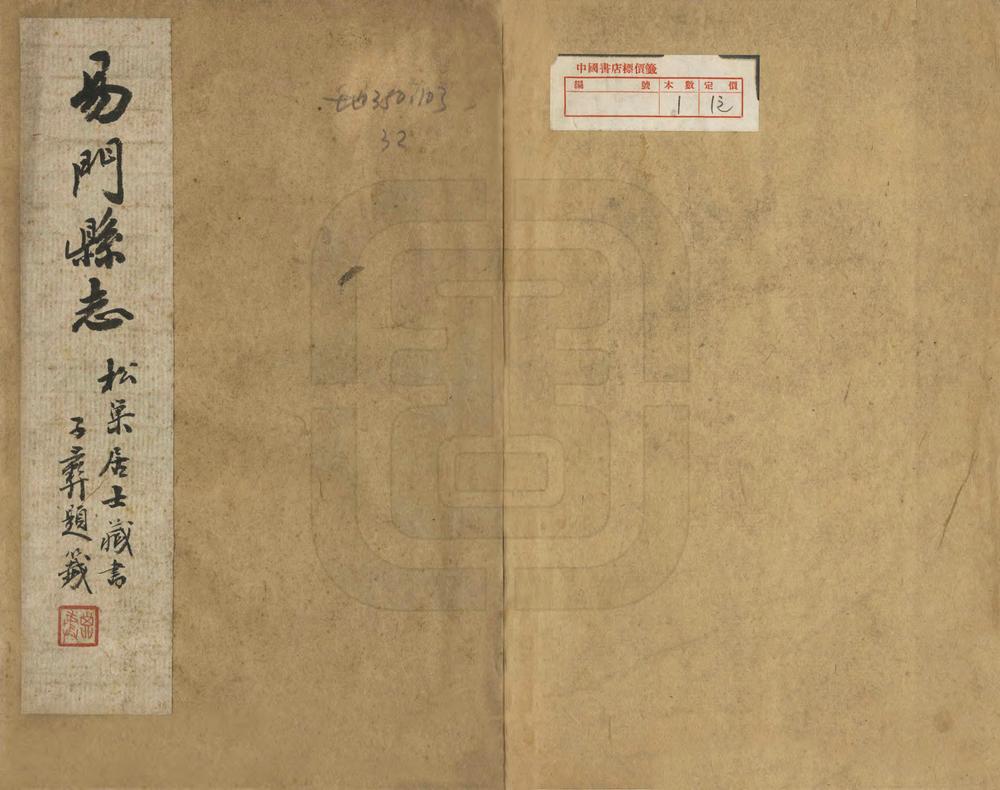 易門縣志
松巢居士藏書
子彝題籤
地350.103
32
中國書店標價籤
編號 本數 定價
1